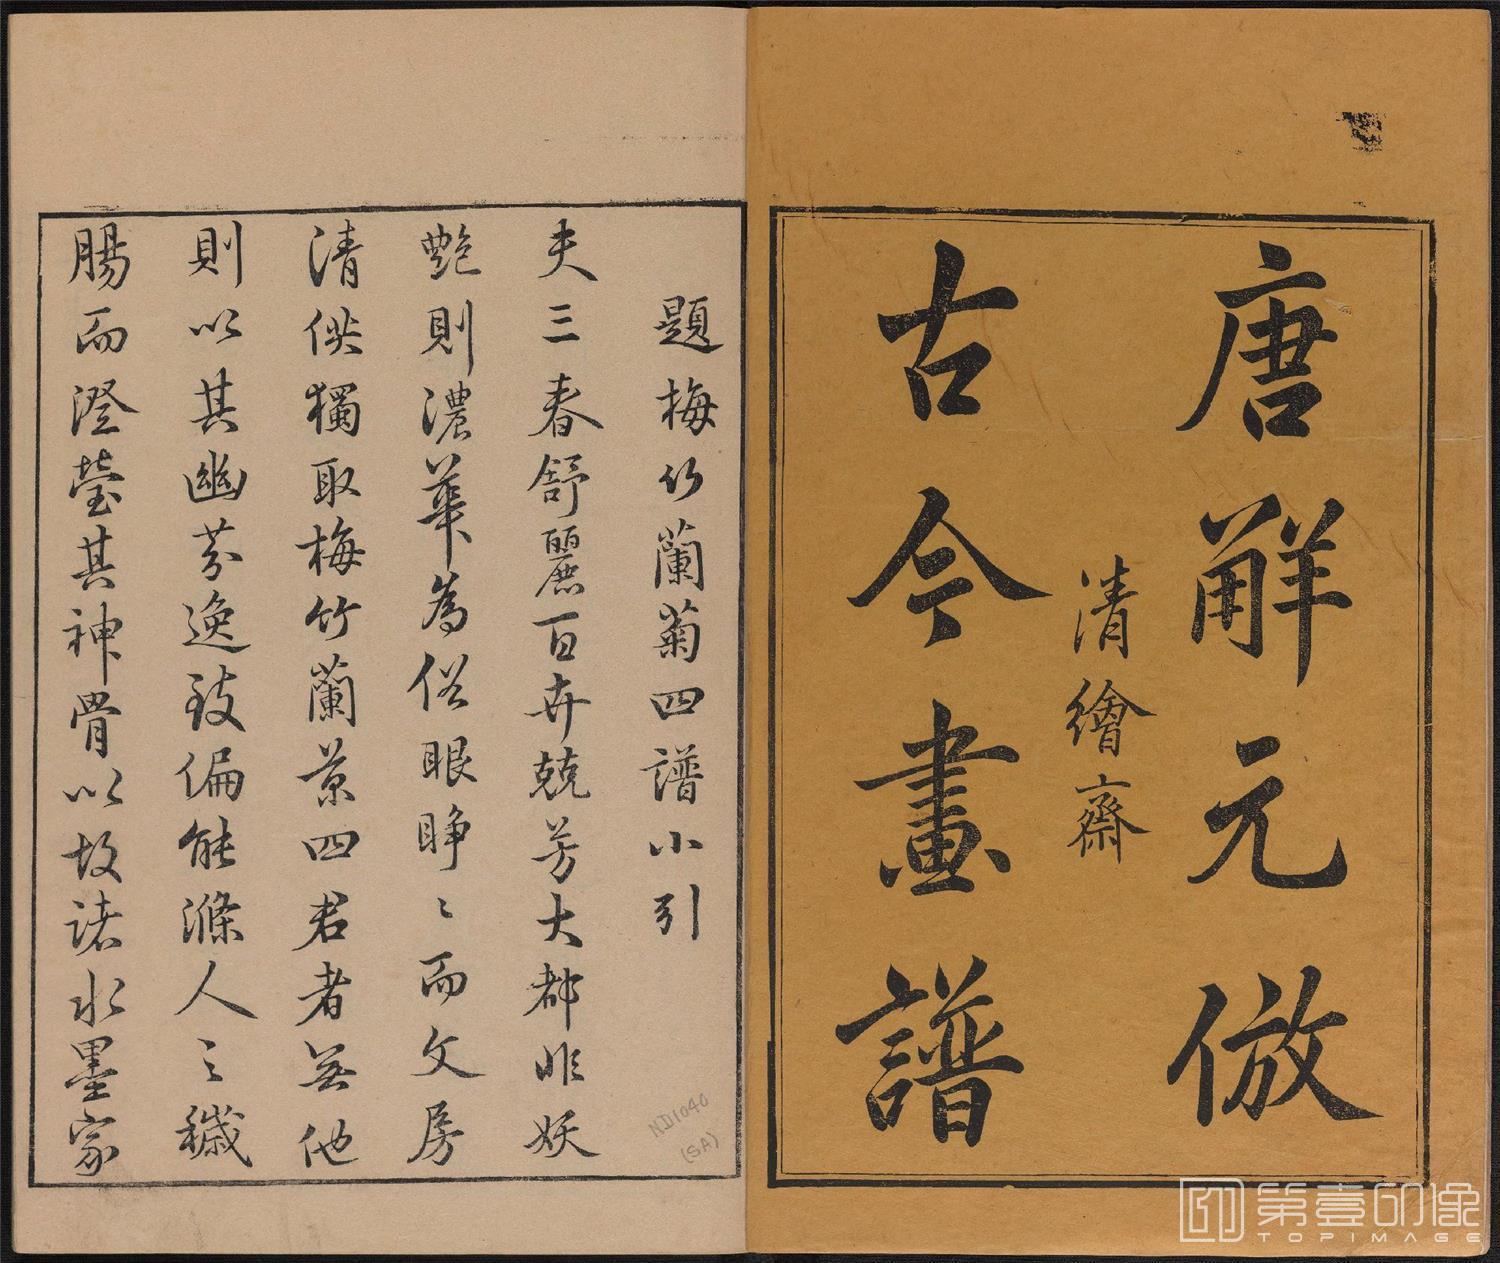 唐解元倣
清繪齋
古今畫譜
題梅竹蘭菊四譜小引
夫三春舒麗百卉兢芳大都非妖
艷則濃華為俗眼睜〻而文房
清供獨取梅竹蘭菊四君者無他
則以其幽芬逸致偏能滌人之穢
腸而澄瑩其神骨以故諸水墨家
ND1040
(SA)
第壹印像
TOPIMAGE